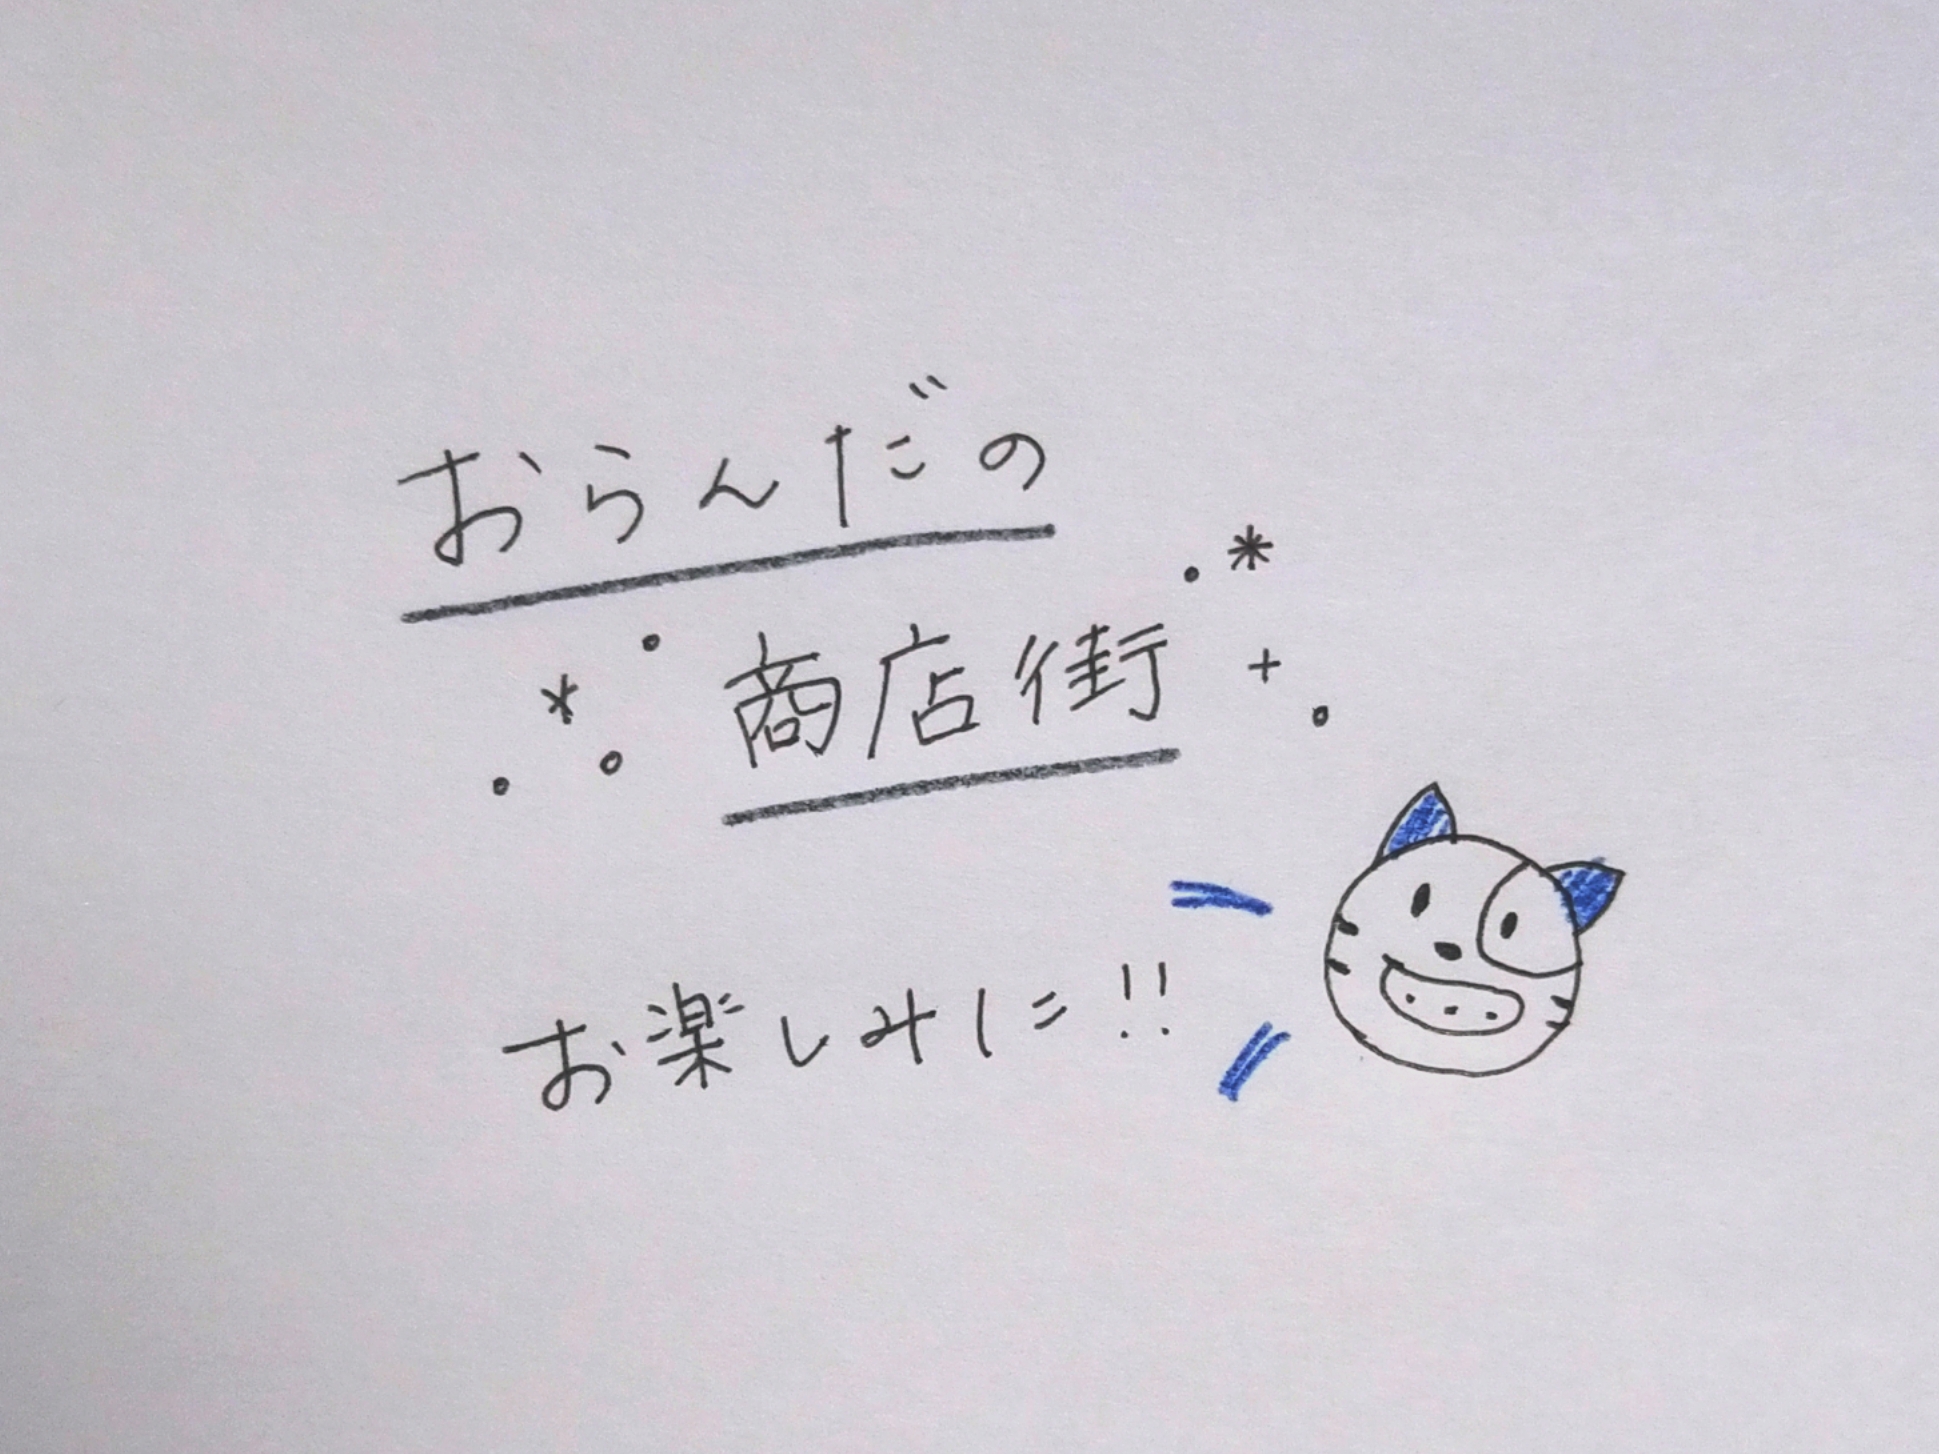 おらんだの
商店街
お楽しみに!!